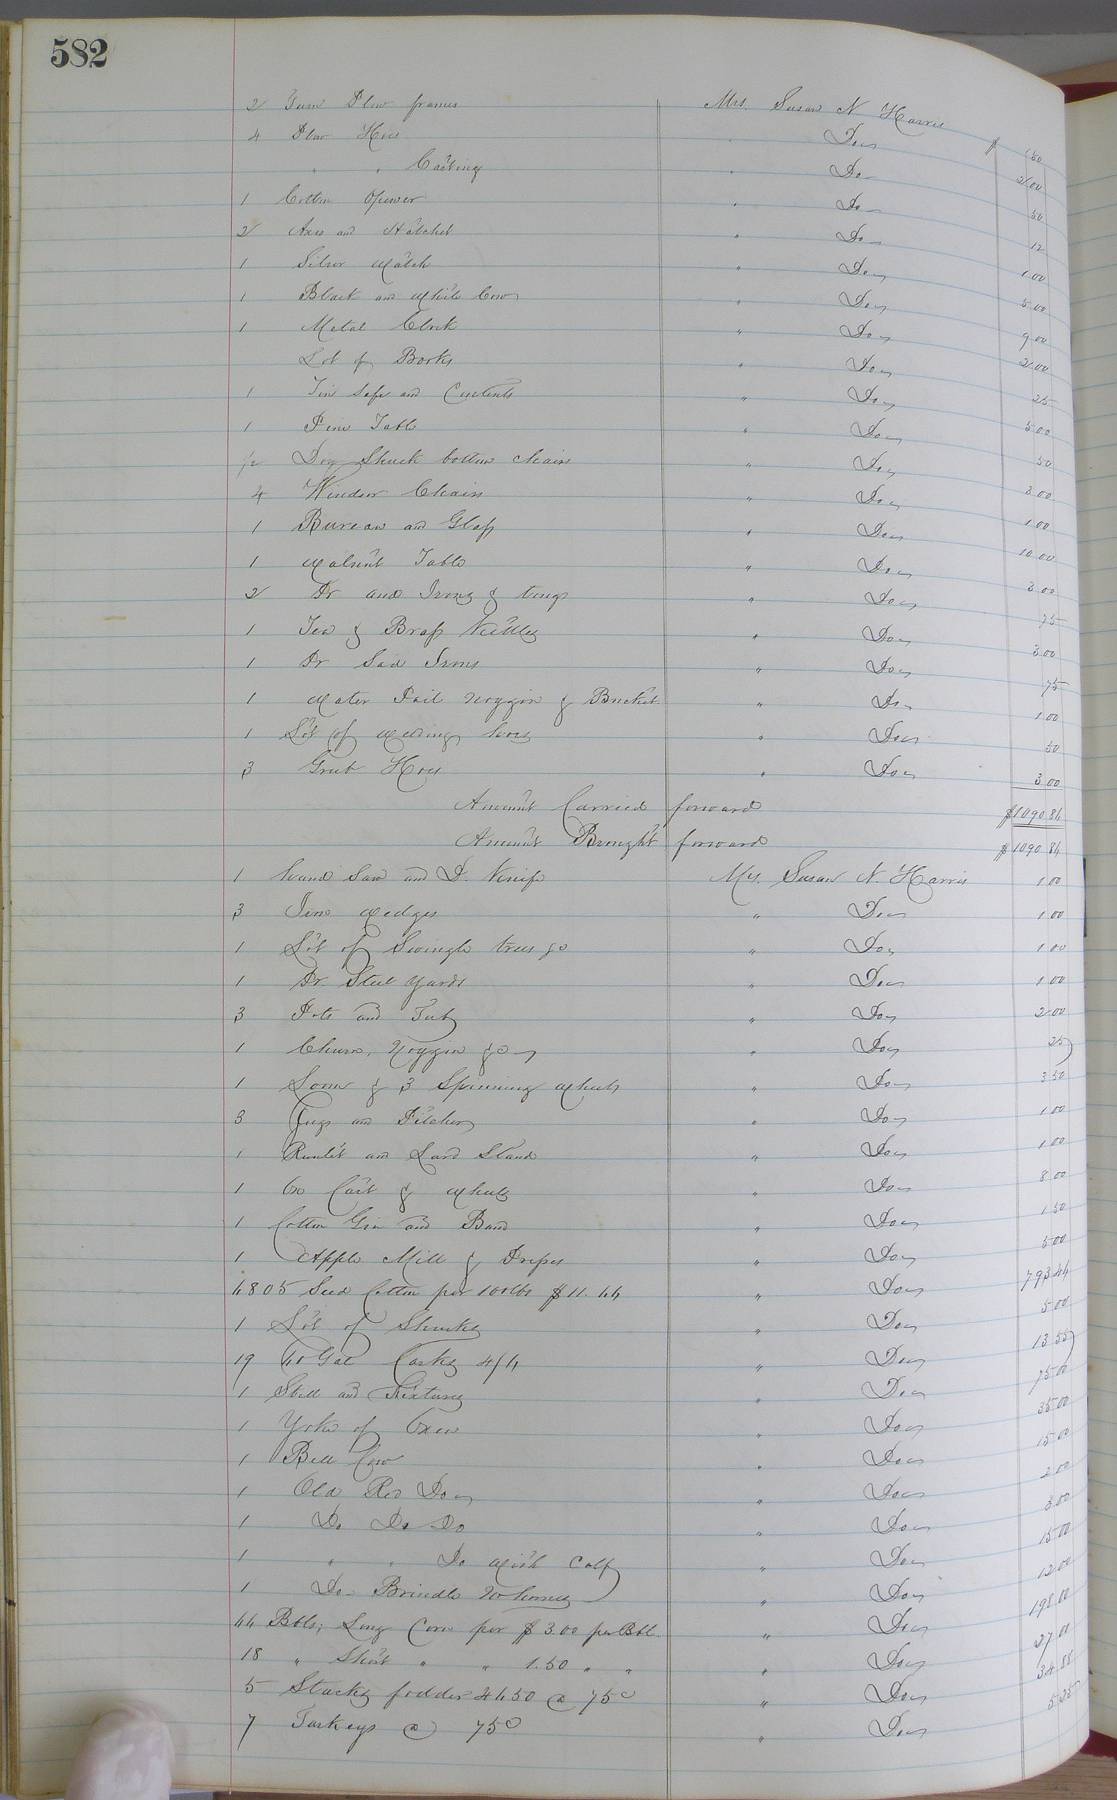 582
2 Turn Plow frames Mrs. Susan N Harris $ 1 50
4 Plow Hoes " Do 2 00
" " Casting " Do 50
1 Cotton Opener " Do 12
2 Axes and Hatchet " Do 1 00
1 Silver Watch " Do 5 00
1 Black and White Cow " Do 9 00
1 Metal Clock " Do 2 00
Lot of Books " Do 25
1 Tin Safe and Contents " Do 5 00
1 Pine Table " Do 50
1/2 Doz Shuck bottom chairs " Do 3 00
4 Windsor Chairs " Do 1 00
1 Bureau and Glass " Do 10 00
1 Walnut Table " Do 3 00
2 Pr and Irons & tongs " Do 75
1 Tea & Brass Kettles " Do 3 00
1 Pr Sad Irons " Do 75
1 Water Pail Noggin & Bucket " Do 1 00
1 Lot of Weeding hoes " Do 50
3 Grub Hoes " Do 3 00
Amount Carried forward $1090 84
Amount Brought forward $1090 84
1 hand Saw and D. Knife Mrs. Susan N. Harris 1 00
3 Iron Wedges " Do 1 00
1 Lot of Swingle trees &c " Do 1 00
1 Pr Steel yards " Do 1 00
3 Pots and Tub " Do 2 00
1 Churn, Noggin &c " Do 25
1 Loom & 3 Spinning Wheels " Do 3 50
3 Jugs and Pitchers " Do 1 00
1 Runlet and Lard Stand " Do 1 00
1 Ox Cart & Wheels " Do 8 00
1 Cotton Gin and Band " Do 1 50
1 Apple Mill & Press " Do 5 00
4805 Seed Cotton per 100lbs $11.44 " Do 793.44
1 Lot of Shucks " Do 5 00
19 40 Gal Casks 4/4 " Do 13 55
1 Still and Fixtures " Do 75 00
1 Yoke of Oxen " Do 35 00
1 Bell Cow " Do 15 00
1 Old Red Do " Do 2 00
1 Do Do Do " Do 3 00
1 " " Do with Calf " Do 15 00
1 Do Brindle " Do 12 00
44 Bbls; Long Corn per $3.00 per Bbl " Do 198 00
18 " Short " " 1.50 " " " Do 27 00
5 Stacks fodder 4650 @ 75c " Do 34 88
7 Turkeys @ 75c " Do 5 25